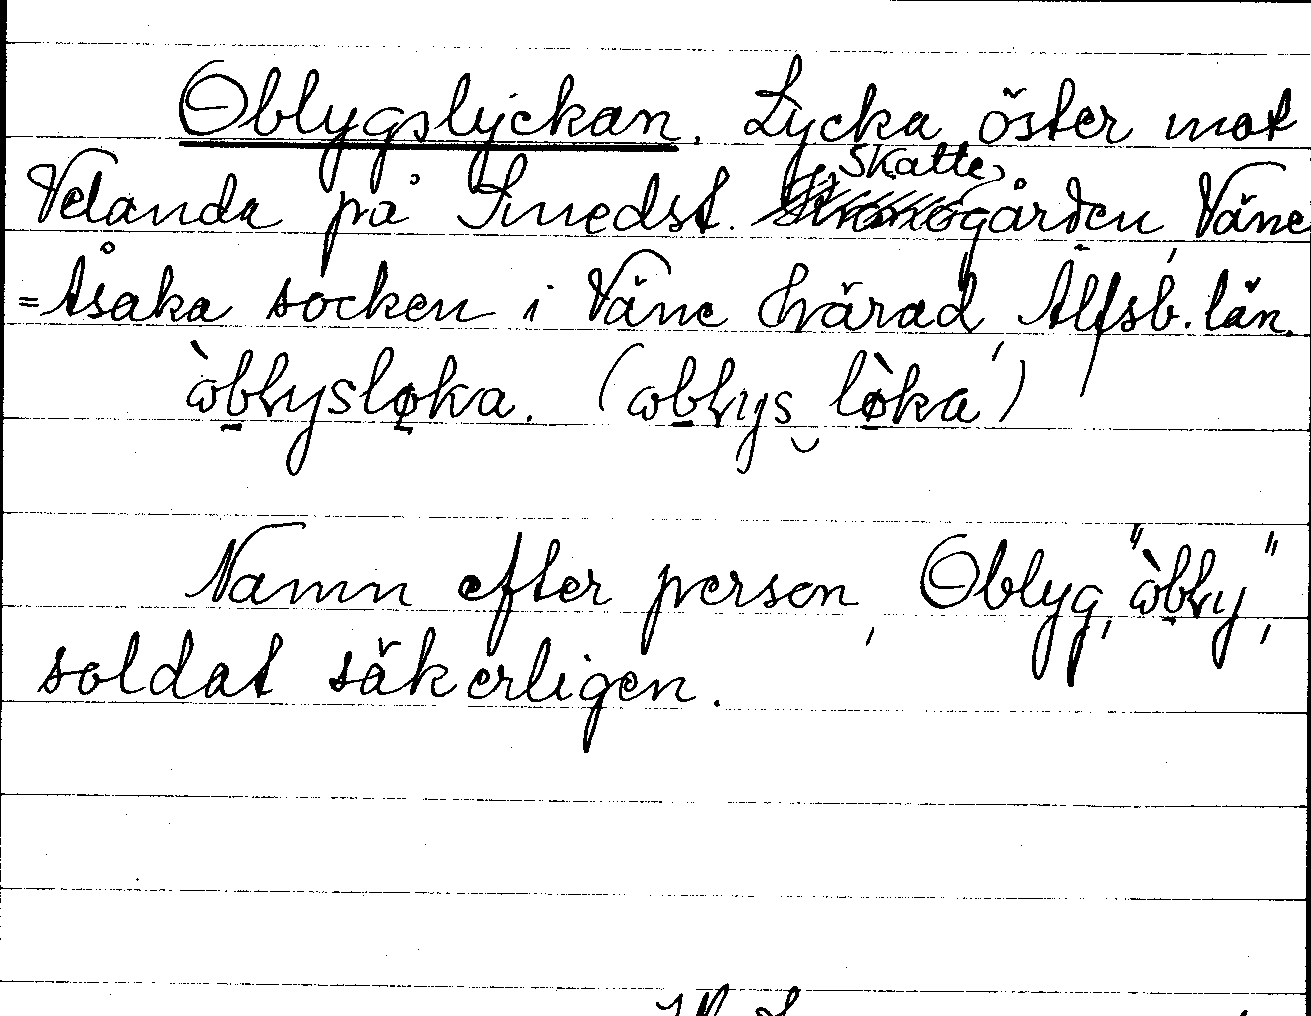 Oblygslyckan. Lycka öster mot
Velanda på Smedst. Skattegården, Väne
=Åsaka socken i Väne härad, Älfsb. län.
ὼblysløka. (ωblys lø̀ka)
Namn efter person, Oblyg, "ὼbly",
soldat säkerligen.